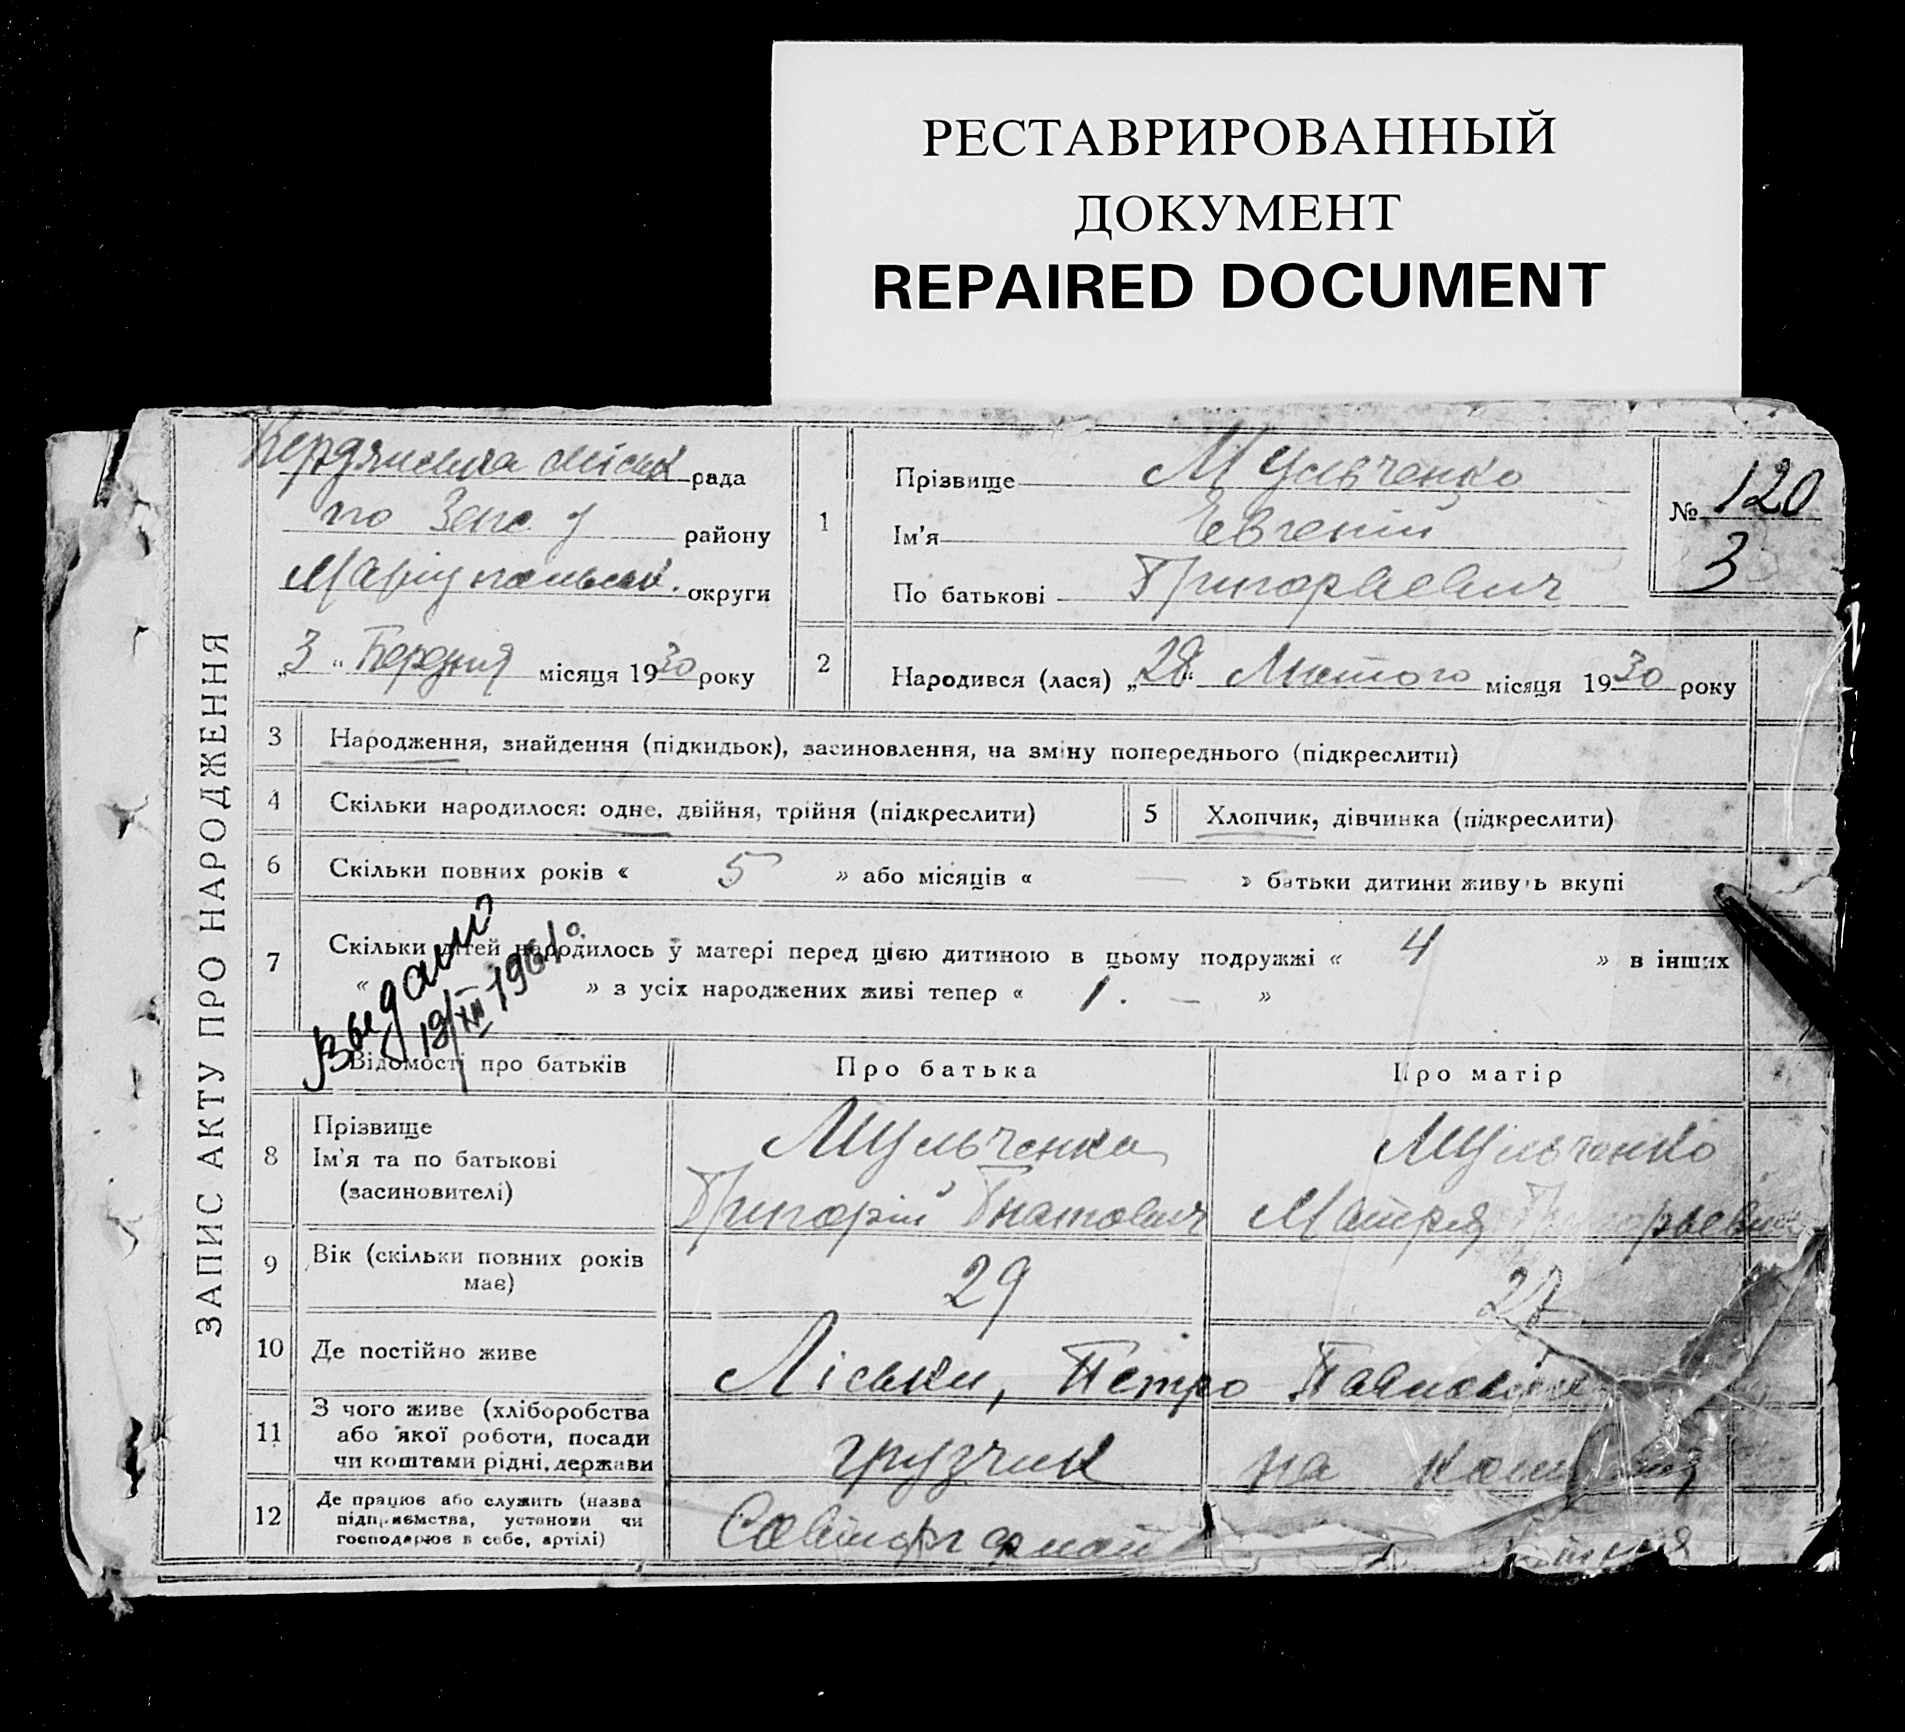 РЕСТАВРИРОВАННЫЙ
ДОКУМЕНТ
REPAIRED DOCUMENT
ЗАПИС АКТУ ПРО НАРОДЖЕННЯ
Бердянська міськ рада
по Загс у району
Маріупольськ. округи
„3“ Березня місяця 1930 року
1
Прізвище Мульченко
Ім'я Евгений
По батькові Григорьевич
№ 120
3
2 Народився (лася) „28“ Лютого місяця 1930 року
3 Народження, знайдення (підкидьок), засиновлення, на зміну попереднього (підкреслити)
4 Скільки народилося: одне, двійня, трійня (підкреслити)
5 Хлопчик, дівчинка (підкреслити)
6 Скільки повних років « 5 » або місяців « — » батьки дитини живуть вкупі
7 Скільки дітей народилось у матері перед цією дитиною в цьому подружжі « 4 » в інших
« » з усіх народжених живі тепер « 1. — »
Выдано
19/XII 1961 г.
Відомості про батьків Про батька Про матір
8 Прізвище
Ім'я та по батькові
(засиновителі)
Мульченко
Григорій Гнатович
Мульченко
9 Вік (скільки повних років
має)
29
10 Де постійно живе Ліськи, Петро
11 З чого живе (хліборобства
або якої роботи, посади
чи коштами рідні, держави
грузчик на
12 Де працює або служить (назва
підприємства, установи чи
господарює в себе, артілі)